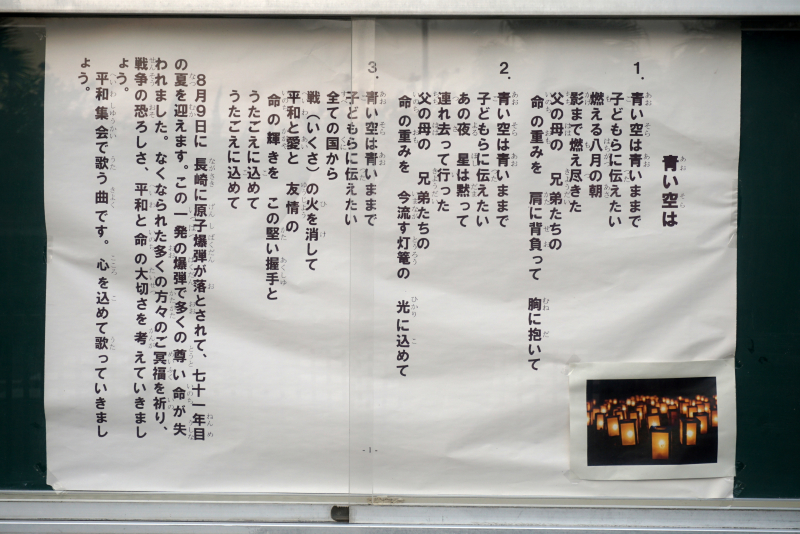 青い空は
1. 青い空は青いままで
子どもらに伝えたい
燃える八月の朝
影まで燃え尽きた
父の母の 兄弟たちの
命の重みを 肩に背負って 胸に抱いて
2. 青い空は青いままで
子どもらに伝えたい
あの夜 星は黙って
連れ去って行った
父の母の 兄弟たちの
命の重みを 今流す灯篭の 光に込めて
3. 青い空は青いままで
子どもらに伝えたい
全ての国から
戦(いくさ)の火を消して
平和と愛と 友情の
命の輝きを この堅い握手と
うたごえに込めて
うたごえに込めて
8月9日に 長崎に原子爆弾が落とされて、七十一年目
の夏を迎えます。この一発の爆弾で多くの尊い命が失
われました。なくなられた多くの方々のご冥福を祈り、
戦争の恐ろしさ、平和と命の大切さを考えていきまし
ょう。
平和集会で歌う曲です。心を込めて歌っていきまし
ょう。
- 1 -